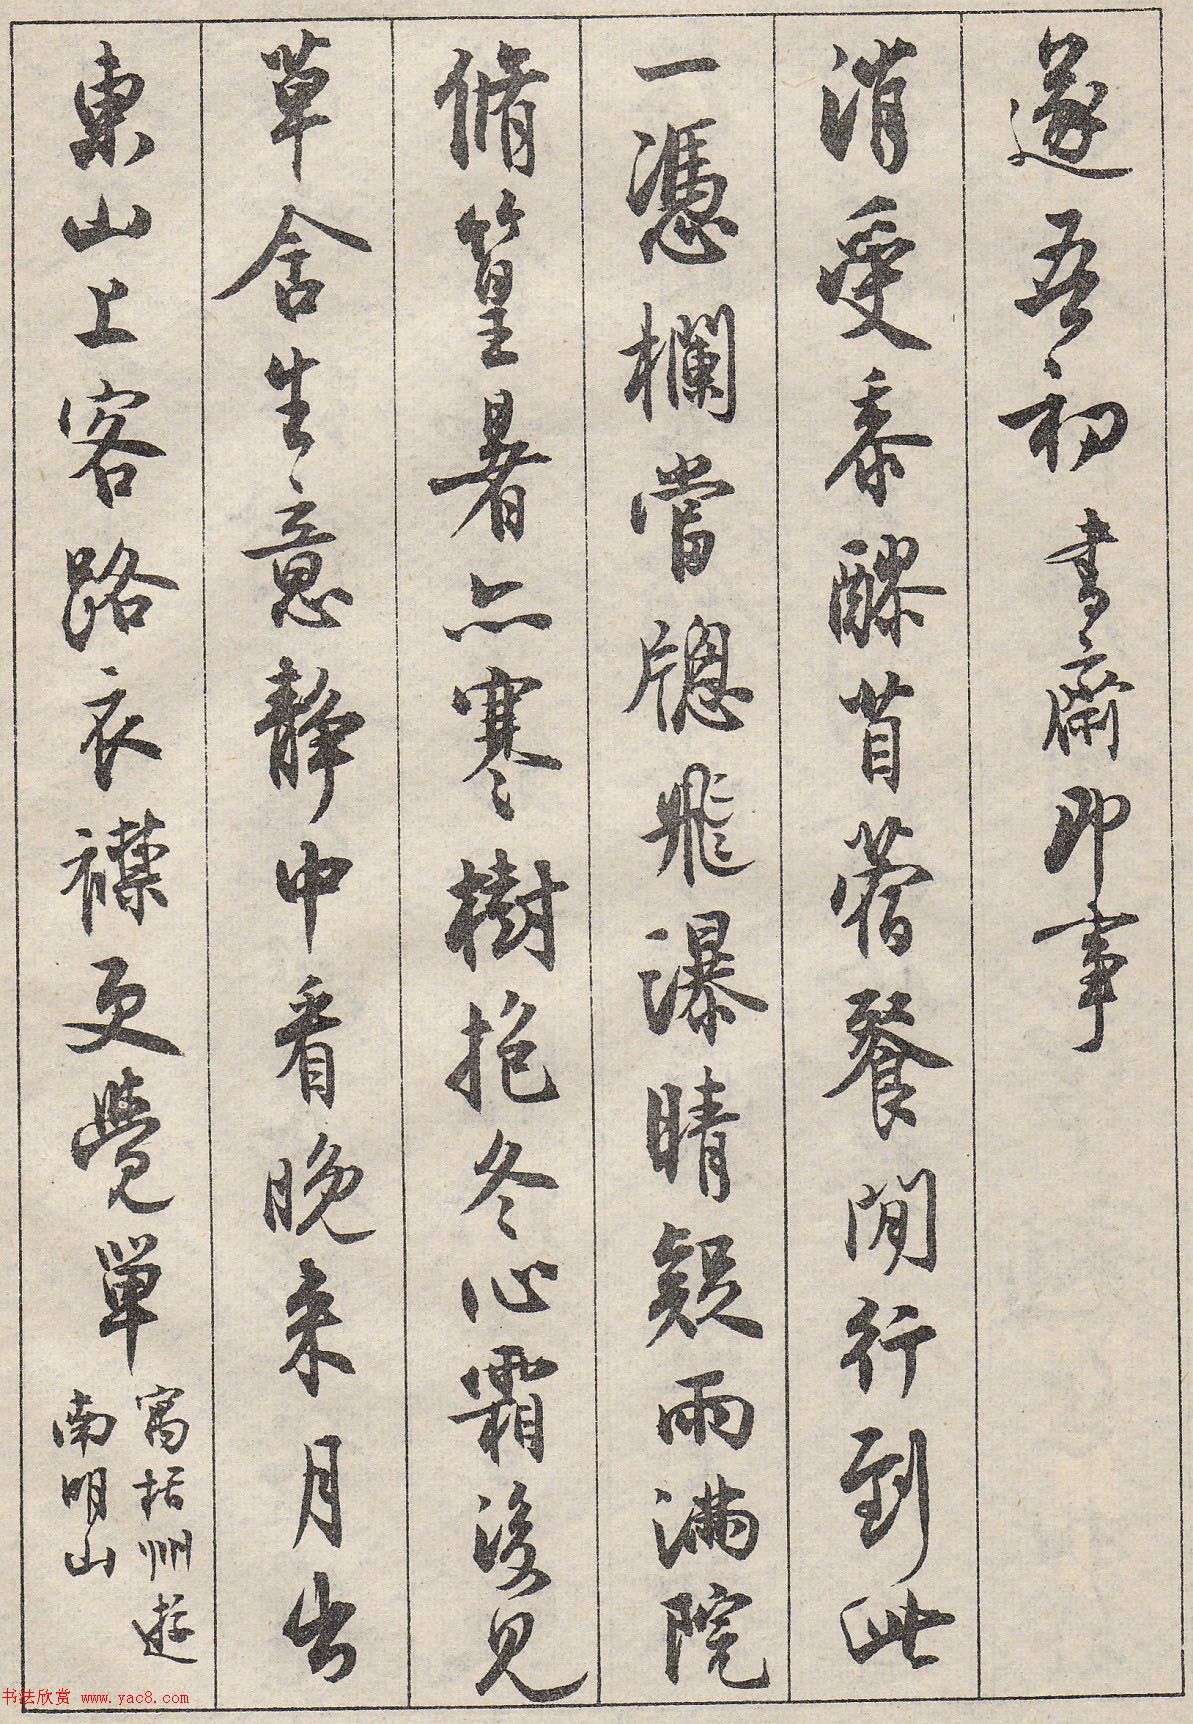 遂吾初書齋即事
消受黍醪苜蓿餐閒行到此
一憑欄當牕飛瀑晴疑雨滿院
脩篁暑亦寒樹抱冬心霜後見
草含生意靜中看晚來月出
東山上客路衣襟更覺單
寓括州遊
南明山
书法欣赏 www.yac8.com